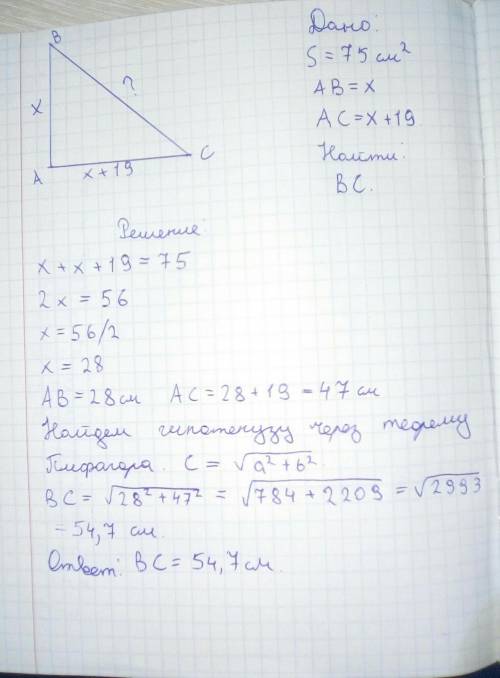 B
x
?
A
x+19
C
Дано:
S=75 см²
AB=x
AC=x+19
Найти:
BC.
Решение:
x+x+19=75
2x=56
x=56/2
x=28
AB=28см AC=28+19=47см
Найдем гипотенузу через теорему
Пифагора. C=√a²+b²
BC=√28²+47²=√784+2209=√2993
=54,7 см.
Ответ: BC=54,7см.